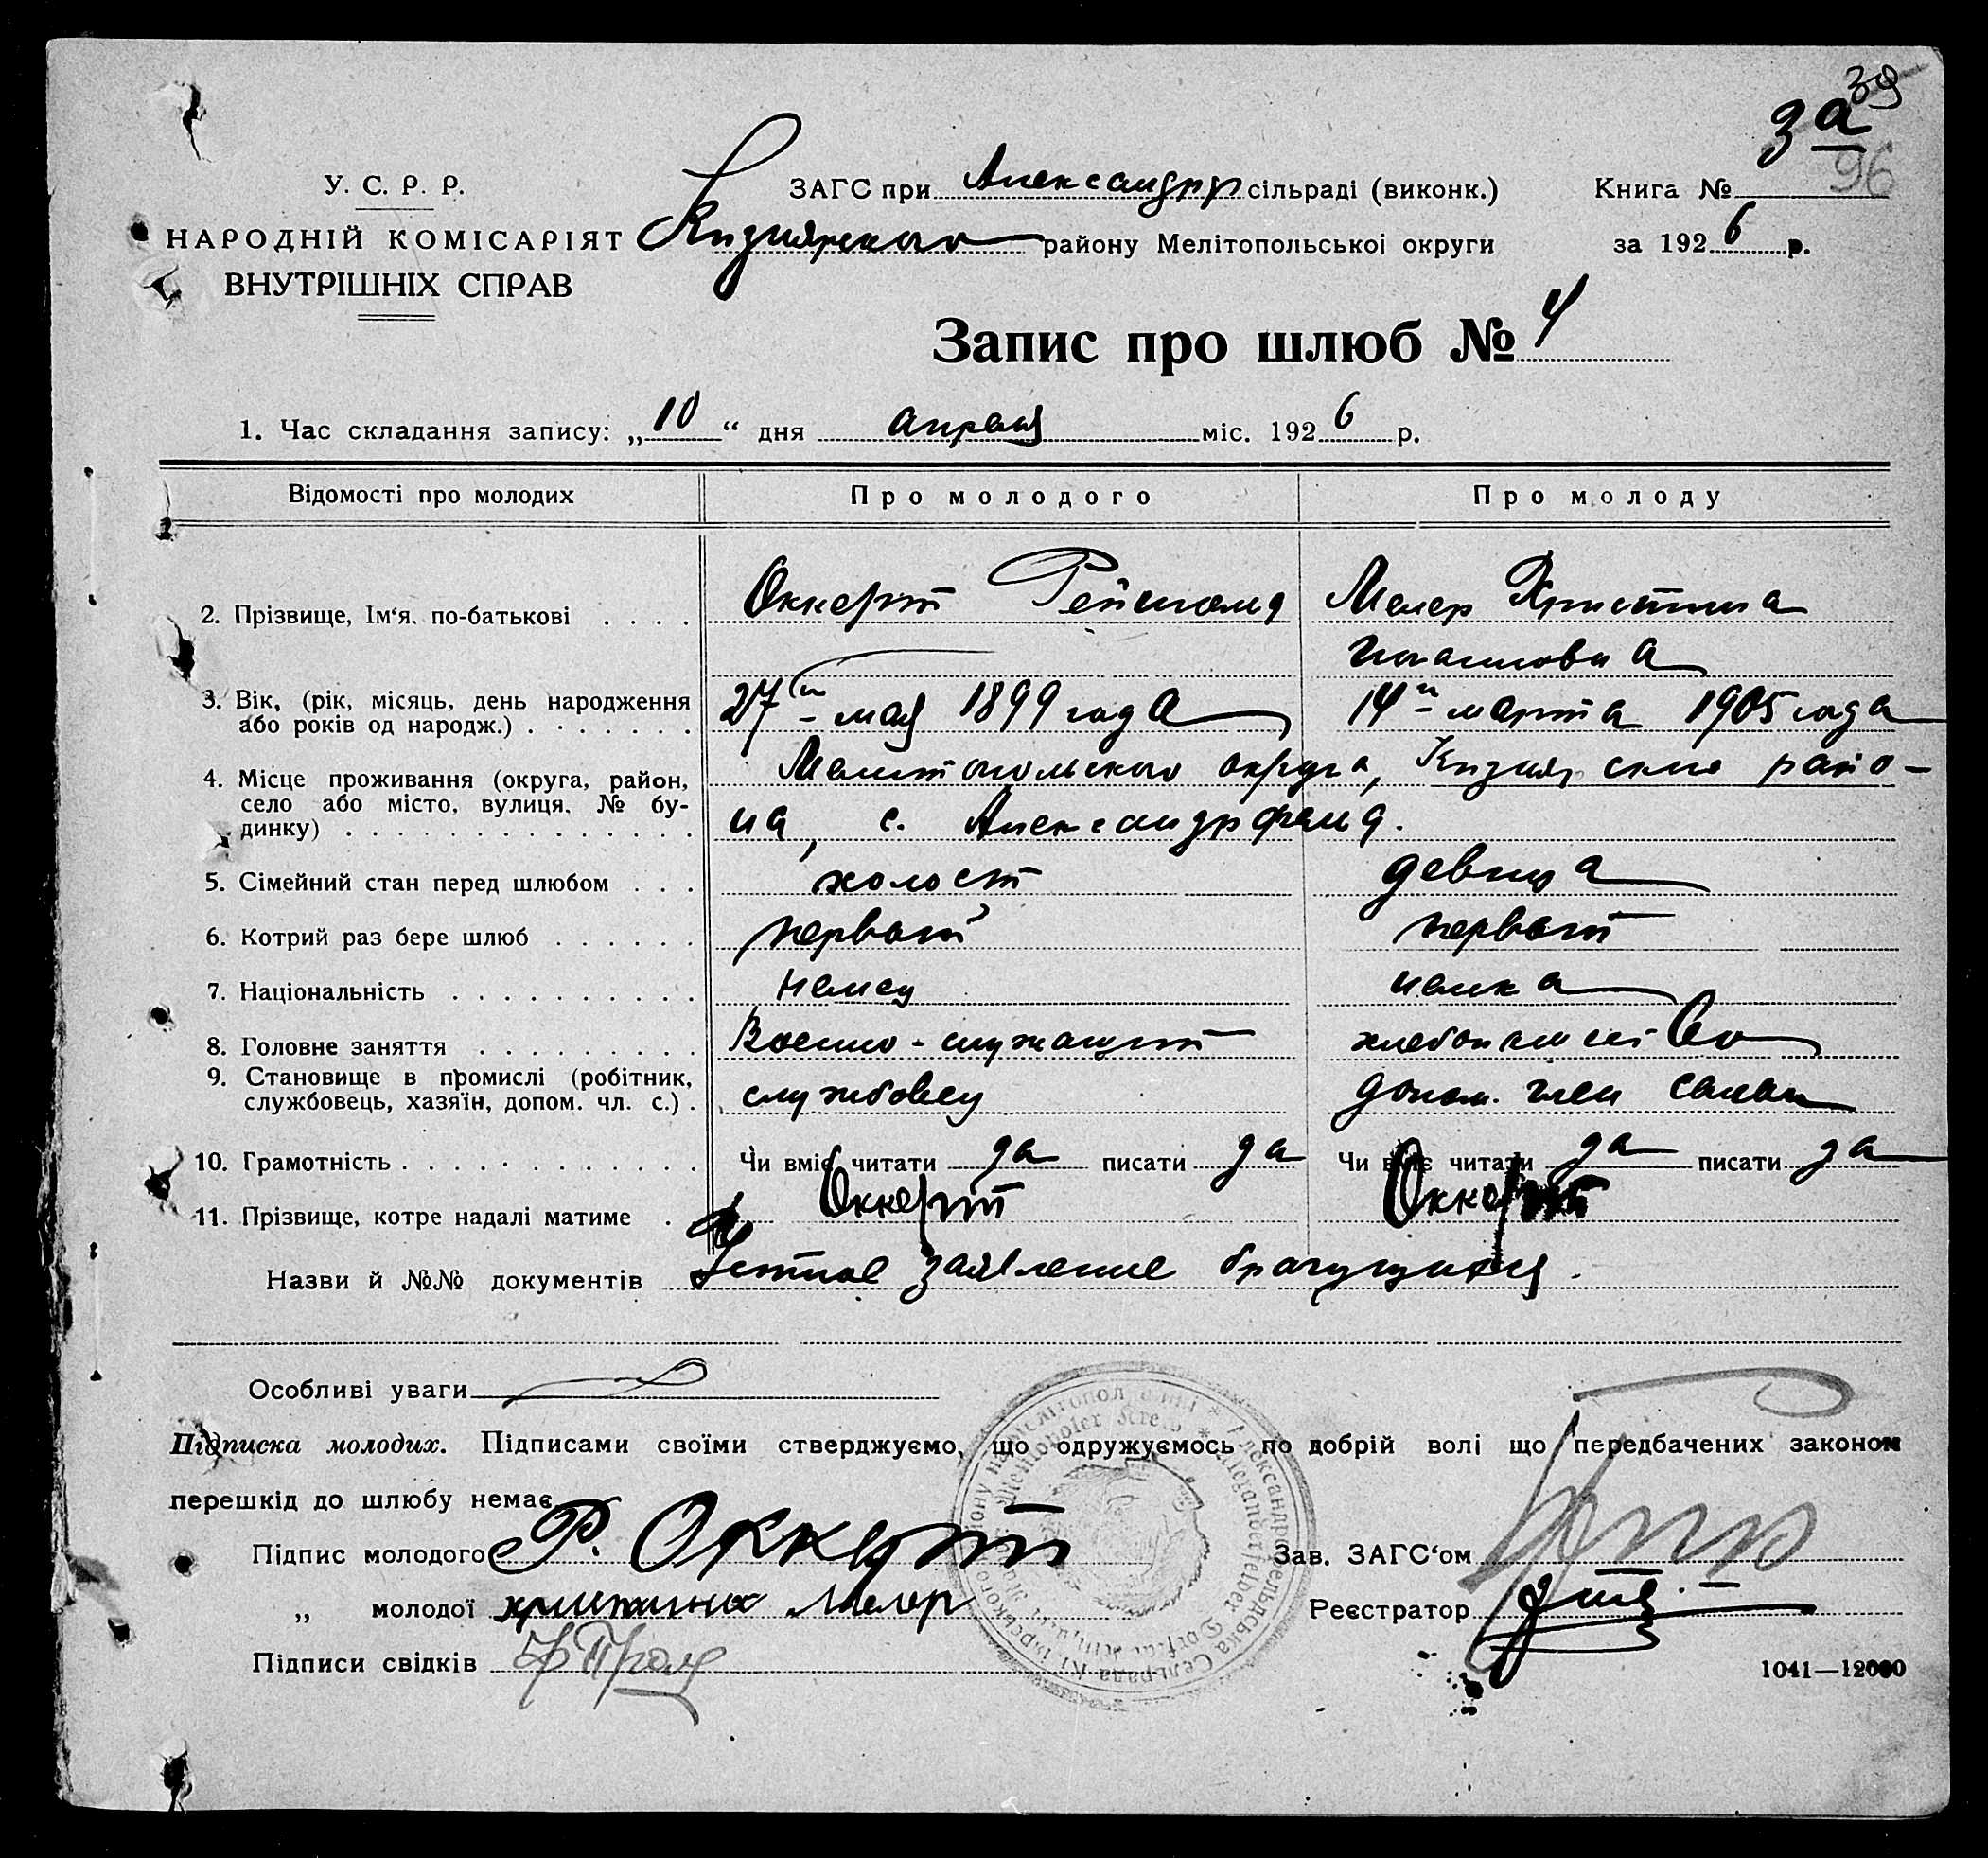 39
3а
96
У. С. Р. Р.
НАРОДНІЙ КОМІСАРІЯТ
ВНУТРІШНІХ СПРАВ
ЗАГС при Александрф сільраді (виконк.)
Кизиярского району Мелітопольської округи
Книга №
за 1926 р.
Запис про шлюб № 4
1. Час складання запису: „10“ дня апреля міс. 1926 р.
Відомості про молодих Про молодого Про молоду
2. Прізвище, Ім'я, по-батькові . . . . Оккерт Рейнгольд Мелер Христина
3. Вік, (рік, місяць, день народження або років од народж.) . . . . . . . 27го мая 1899 года 14го марта 1905 года
4. Місце проживання (округа, район, Мелитопольского округа, Кизиярского райо-
село або місто, вулиця, № бу-
динку) . . . . . . . . . . . . . . на, с. Александрфельд.
5. Сімейний стан перед шлюбом . . . холост девица
6. Котрий раз бере шлюб . . . . . . первый первый
7. Національність . . . . . . . . . . немец немка
8. Головне заняття . . . . . . . . . Военно-служащий хлебопашество
9. Становище в промислі (робітник,
службовець, хазяїн, допом. чл. с.) . службовец допом. член семьи
10. Грамотність . . . . . . . . . . . . Чи вміє читати да писати да Чи вміє читати да писати да
11. Прізвище, котре надалі матиме . Оккерт Оккерт
Назви й №№ документів Устное заявление брачущихся.
Особливі уваги
Підписка молодих. Підписами своїми стверджуємо, що одружуємось по добрій волі що передбачених законом
перешкід до шлюбу немає.
Підпис молодого Р. Оккерт
Зав. ЗАГС'ом
„ молодої христина Мелер
Реєстратор
Підписи свідків
1041—12000